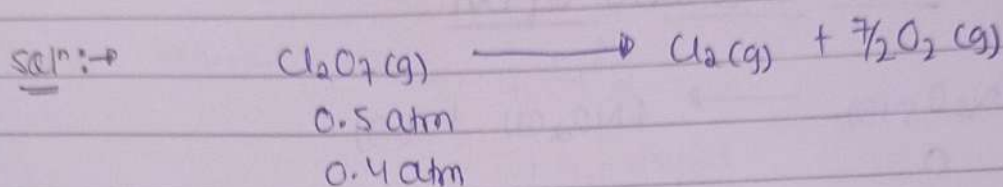 Solⁿ:→ Cl₂O₇(g) ⟶ Cl₂(g) + 7/2 O₂ (g)
0.5 atm
0.4 atm